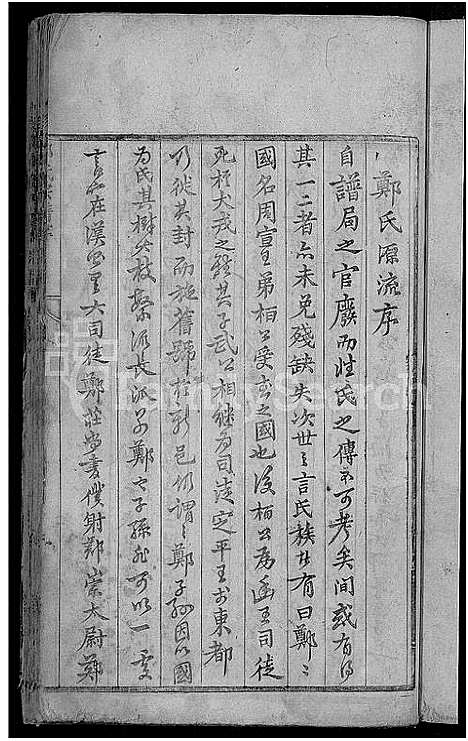 鄭氏源流序
自譜局之官廢而姓氏之傳不可考矣間或有得
其一二者亦未免殘缺失次世之言氏族者有曰鄭鄭
國名周宣王弟桓公受封之國也後桓公為幽王司徒
死於犬戎之難其子武公相繼為司徒定平王於東都
乃徙其封而施舊號於新邑仍謂之鄭子孫因以國
為氏其樹大枝繁源長派分鄭之子孫非可以一處
言在漢則大司徒鄭莊尚書僕射鄭崇太尉鄭
FamilySearch